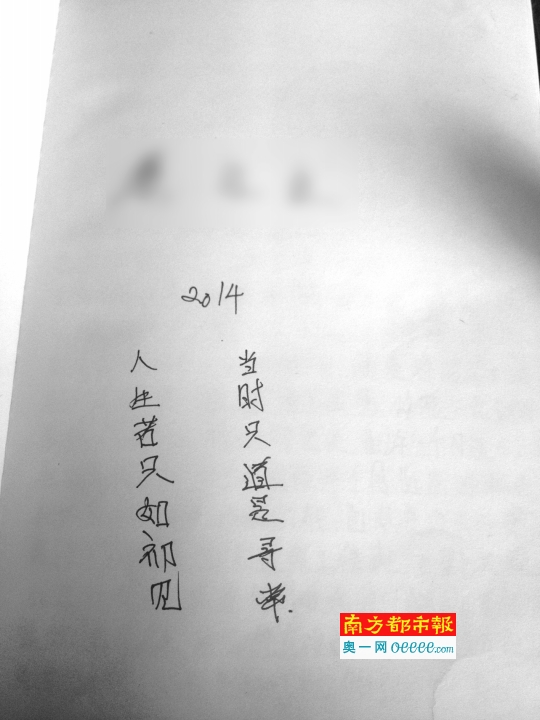 2014
人生若只如初见
当时只道是寻常.
南方都市報
奥一网 oeeee.com